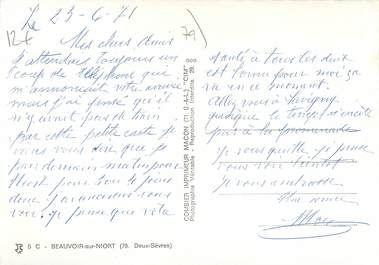 Le 23-6-71
12€
79
Mes chers amis
J'attendais toujours un
coup de téléphone qui
m'annoncerait votre arrivée
mais j'ai pensé qu'il
n'y avait pas de train
par cette petite carte je
vous dire que je
pars demain matin pour
pour 4 jours
donc j'
vous je pense que cela
santé à tous les deux
est bonne pour moi ça
va en ce moment.
Allez vous à
quoique le temps n'incite
pas à la promenade
je vous quitte je pense
vous voir bientôt
je vous embrasse
Une amie
COMBIER IMPRIMEUR MACON (S.-&-L.) "CIM"
Photographie Véritable - Reproduction Interdite. 29.
5 C - BEAUVOIR-sur-NIORT (79. Deux-Sèvres)